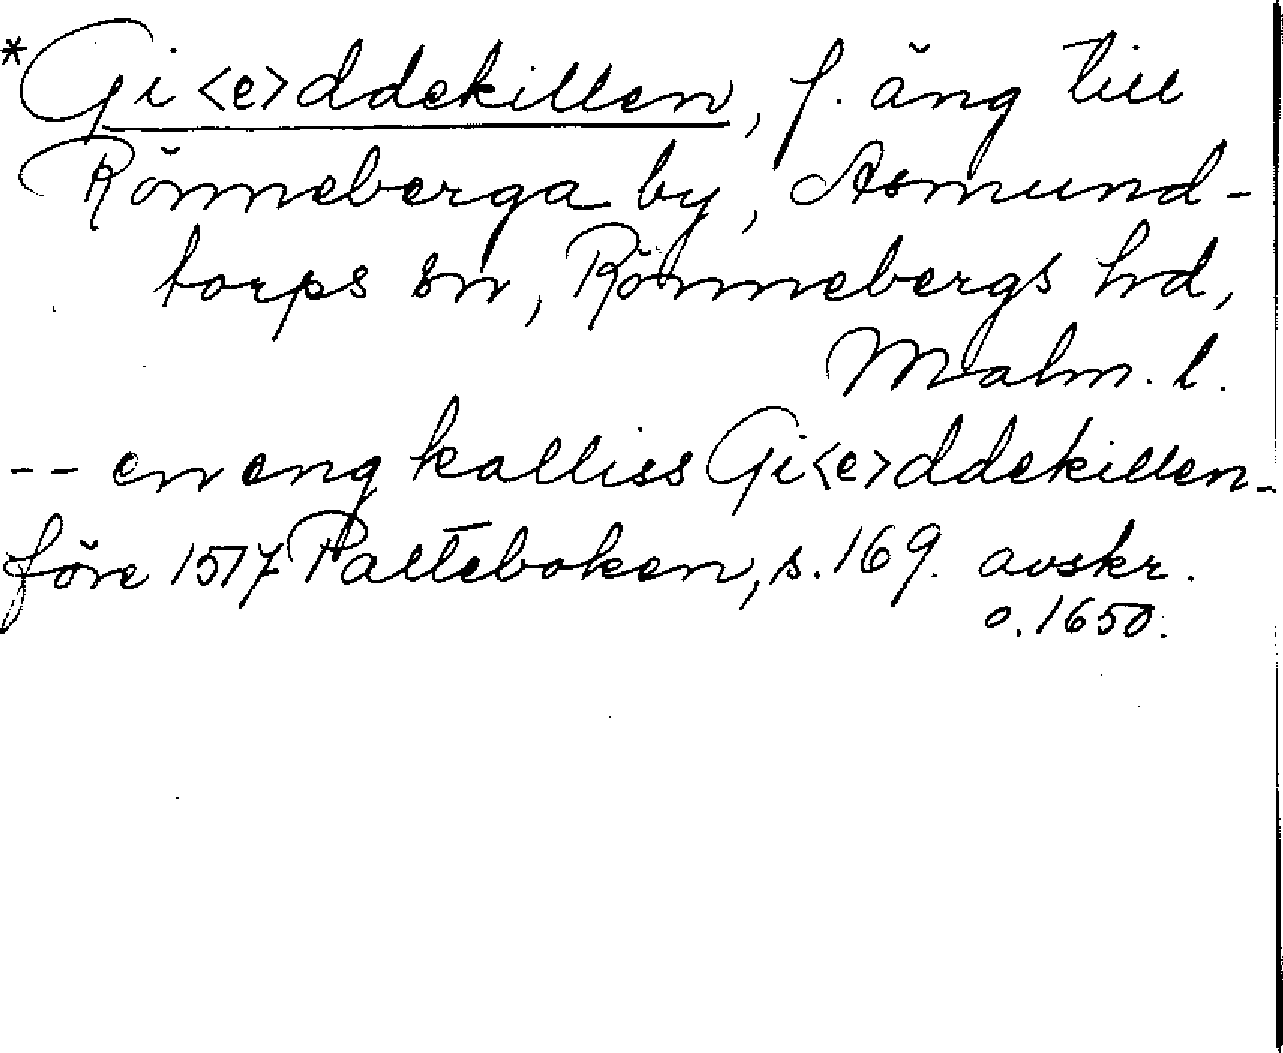 *Gi<e>ddekillen, f. äng till
Rönneberga by, Asmund-
torps sn, Rönnebergs hd,
Malm. l.
-- en eng kalliss Gi<e>ddekillen -
före 1517 Palteboken, s. 169. avskr.
o. 1650.